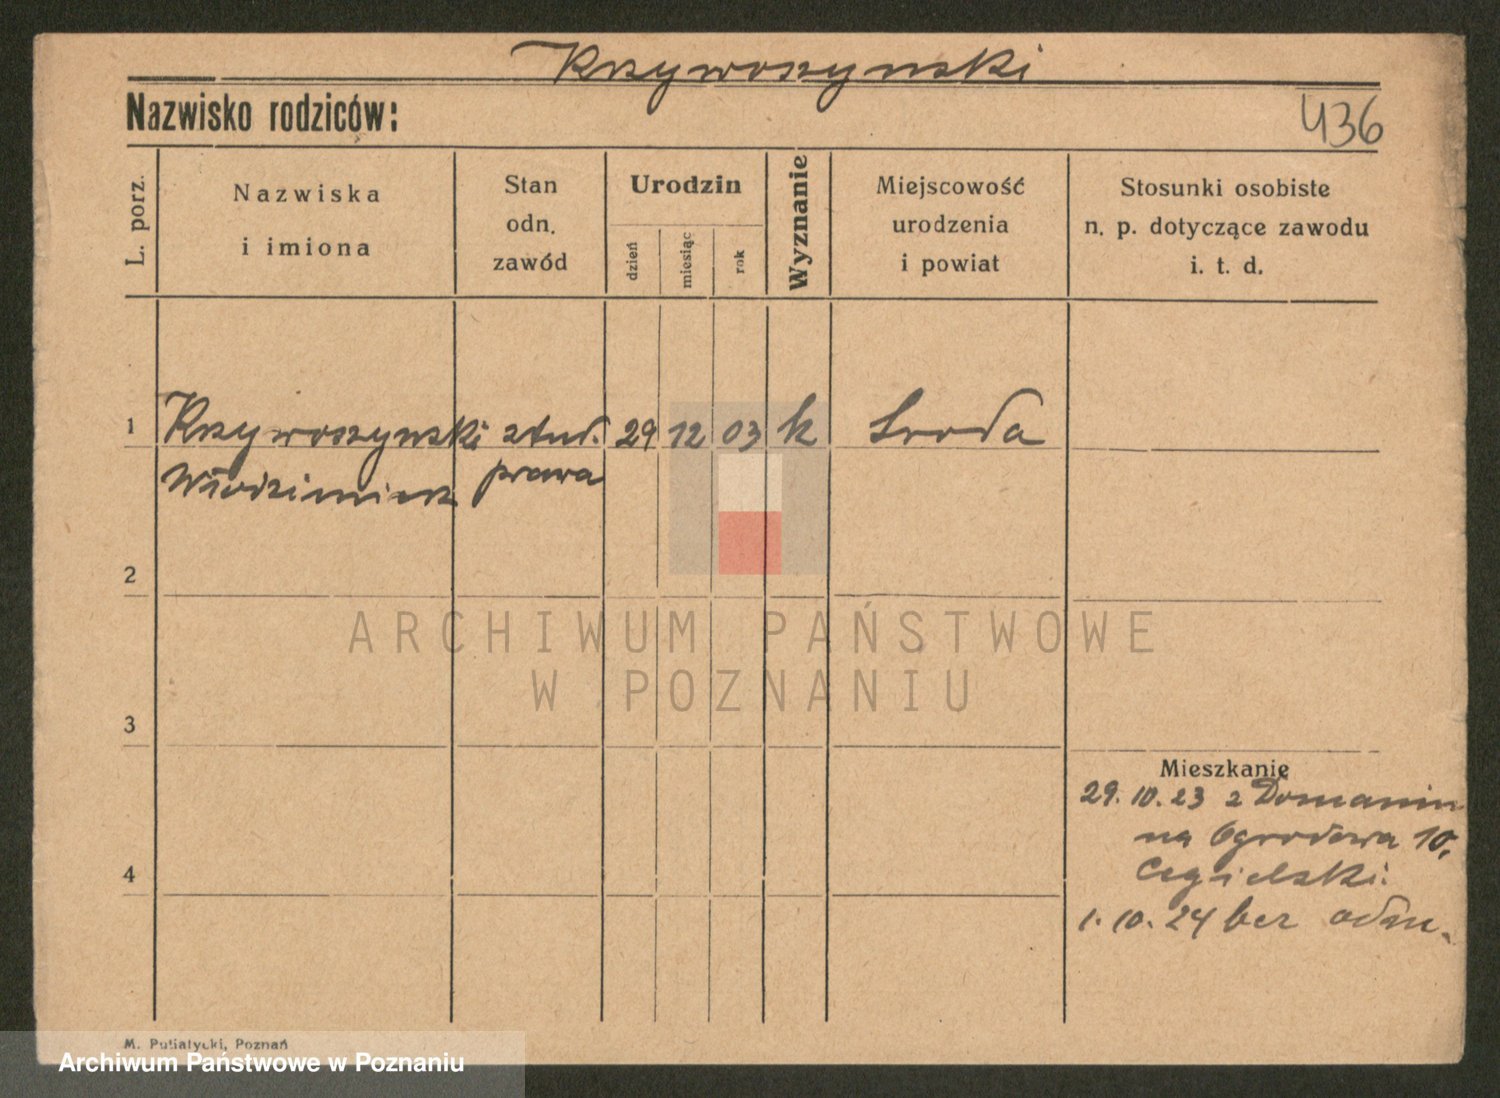 Krzywoszynski
Nazwisko rodziców:
436
L. porz.
Nazwiska
i imiona
Stan
odn.
zawód
Urodzin
dzień
miesiąc
rok
Wyznanie
Miejscowość
urodzenia
i powiat
Stosunki osobiste
n. p. dotyczące zawodu
i. t. d.
1
Krzywoszynski stud. 29 12 03 k Sroda
Włodzimierz prawa
2
ARCHIWUM PAŃSTWOWE
W POZNANIU
3
Mieszkanie
29. 10. 23 z Domanin
na Ogrodowa 10,
Cegielski.
4
1. 10. 24 bez odm.
M. Putiatycki, Poznań
Archiwum Państwowe w Poznaniu